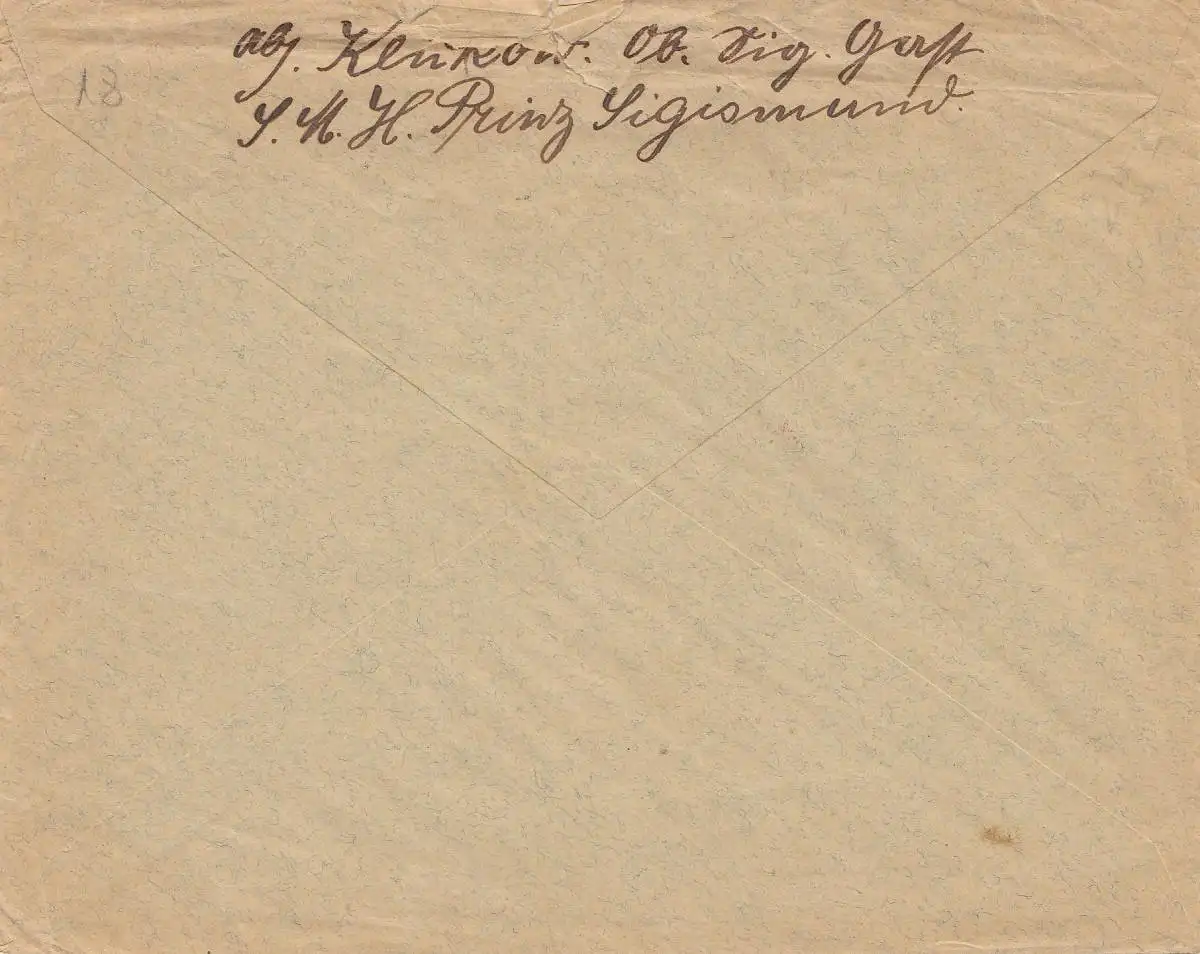 abs. Klükow. Ob. Sig. Gast
S. M. H. Prinz Sigismund.
18